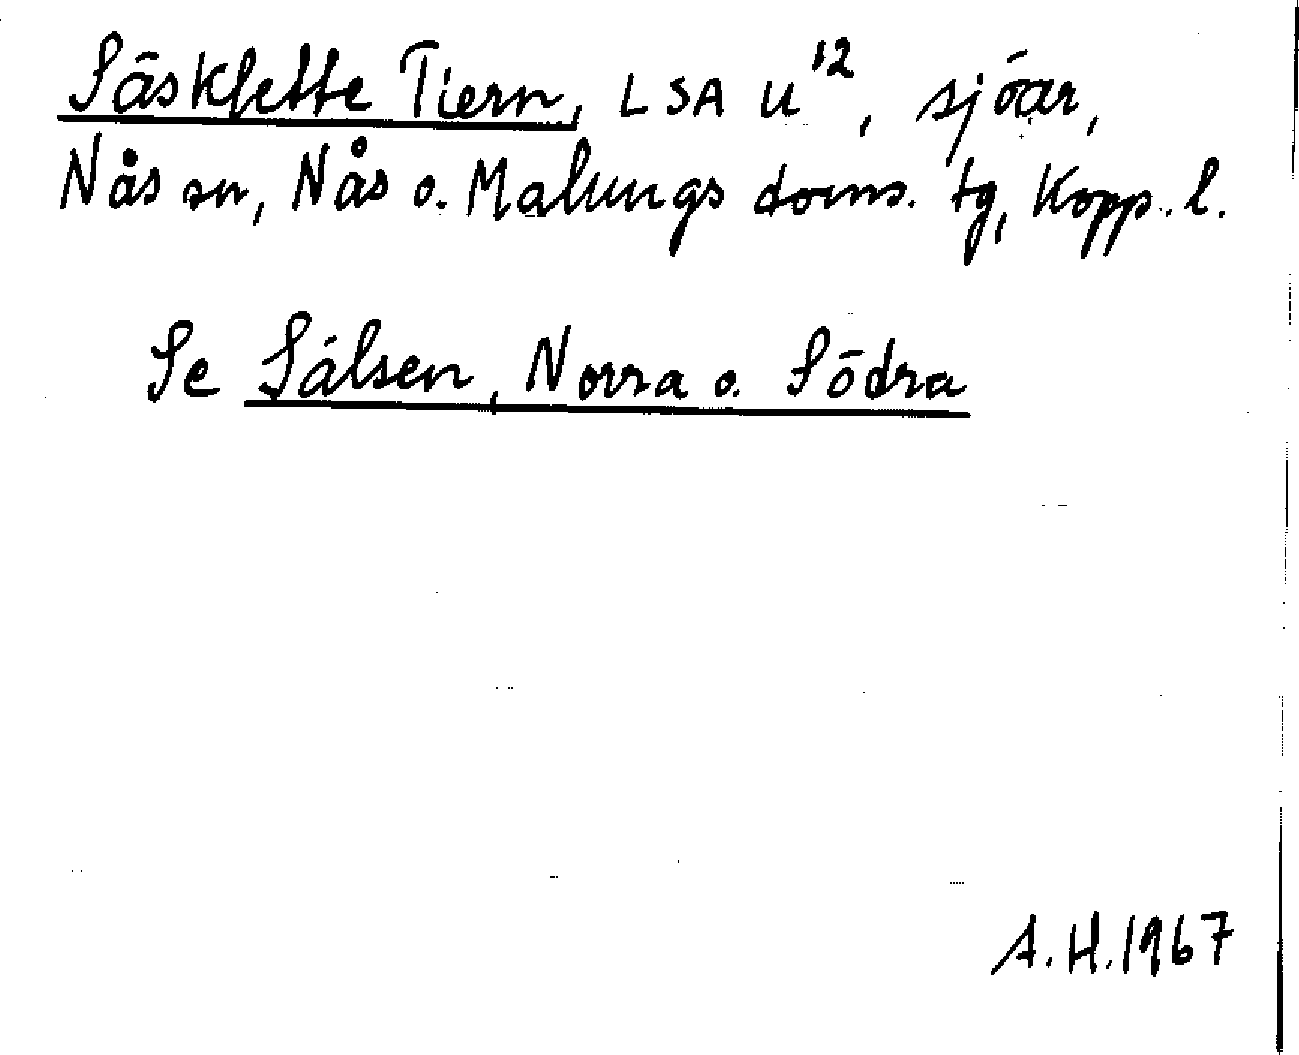 Säsklette Tiern, LSA U¹², sjöar,
Nås sn, Nås o. Malungs doms. tg, Kopp. l.
Se Sälsen, Norra o. Södra
A.H. 1967